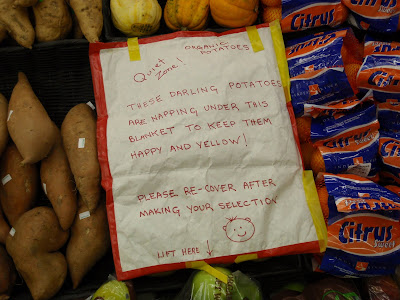 ORGANIC
POTATOES
Quiet
Zone!
THESE DARLING POTATOES
ARE NAPPING UNDER THIS
BLANKET TO KEEP THEM
HAPPY AND YELLOW!
PLEASE RE-COVER AFTER
MAKING YOUR SELECTION
LIFT HERE ↓
Citrus
Citrus
Citrus
Citrus
Citrus
Sweet